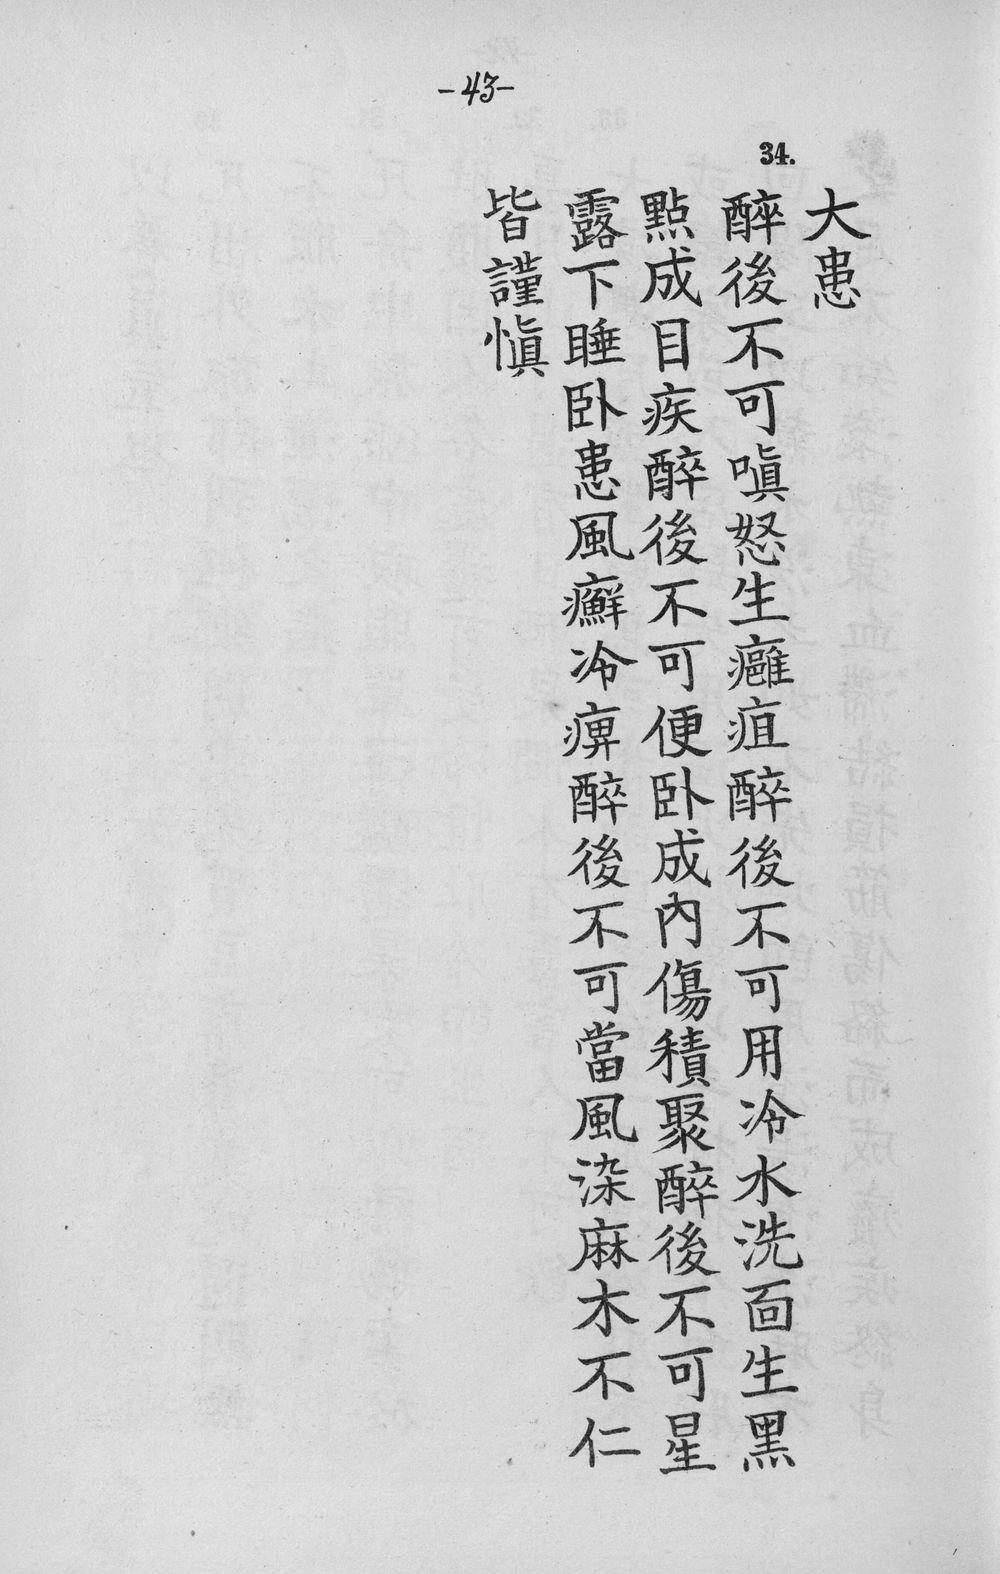 -43-
34.
大患
醉後不可嗔怒生癰疽醉後不可用冷水洗面生黑
點成目疾醉後不可便卧成內傷積聚醉後不可星
露下睡卧患風癬冷痹醉後不可當風染麻木不仁
皆謹慎